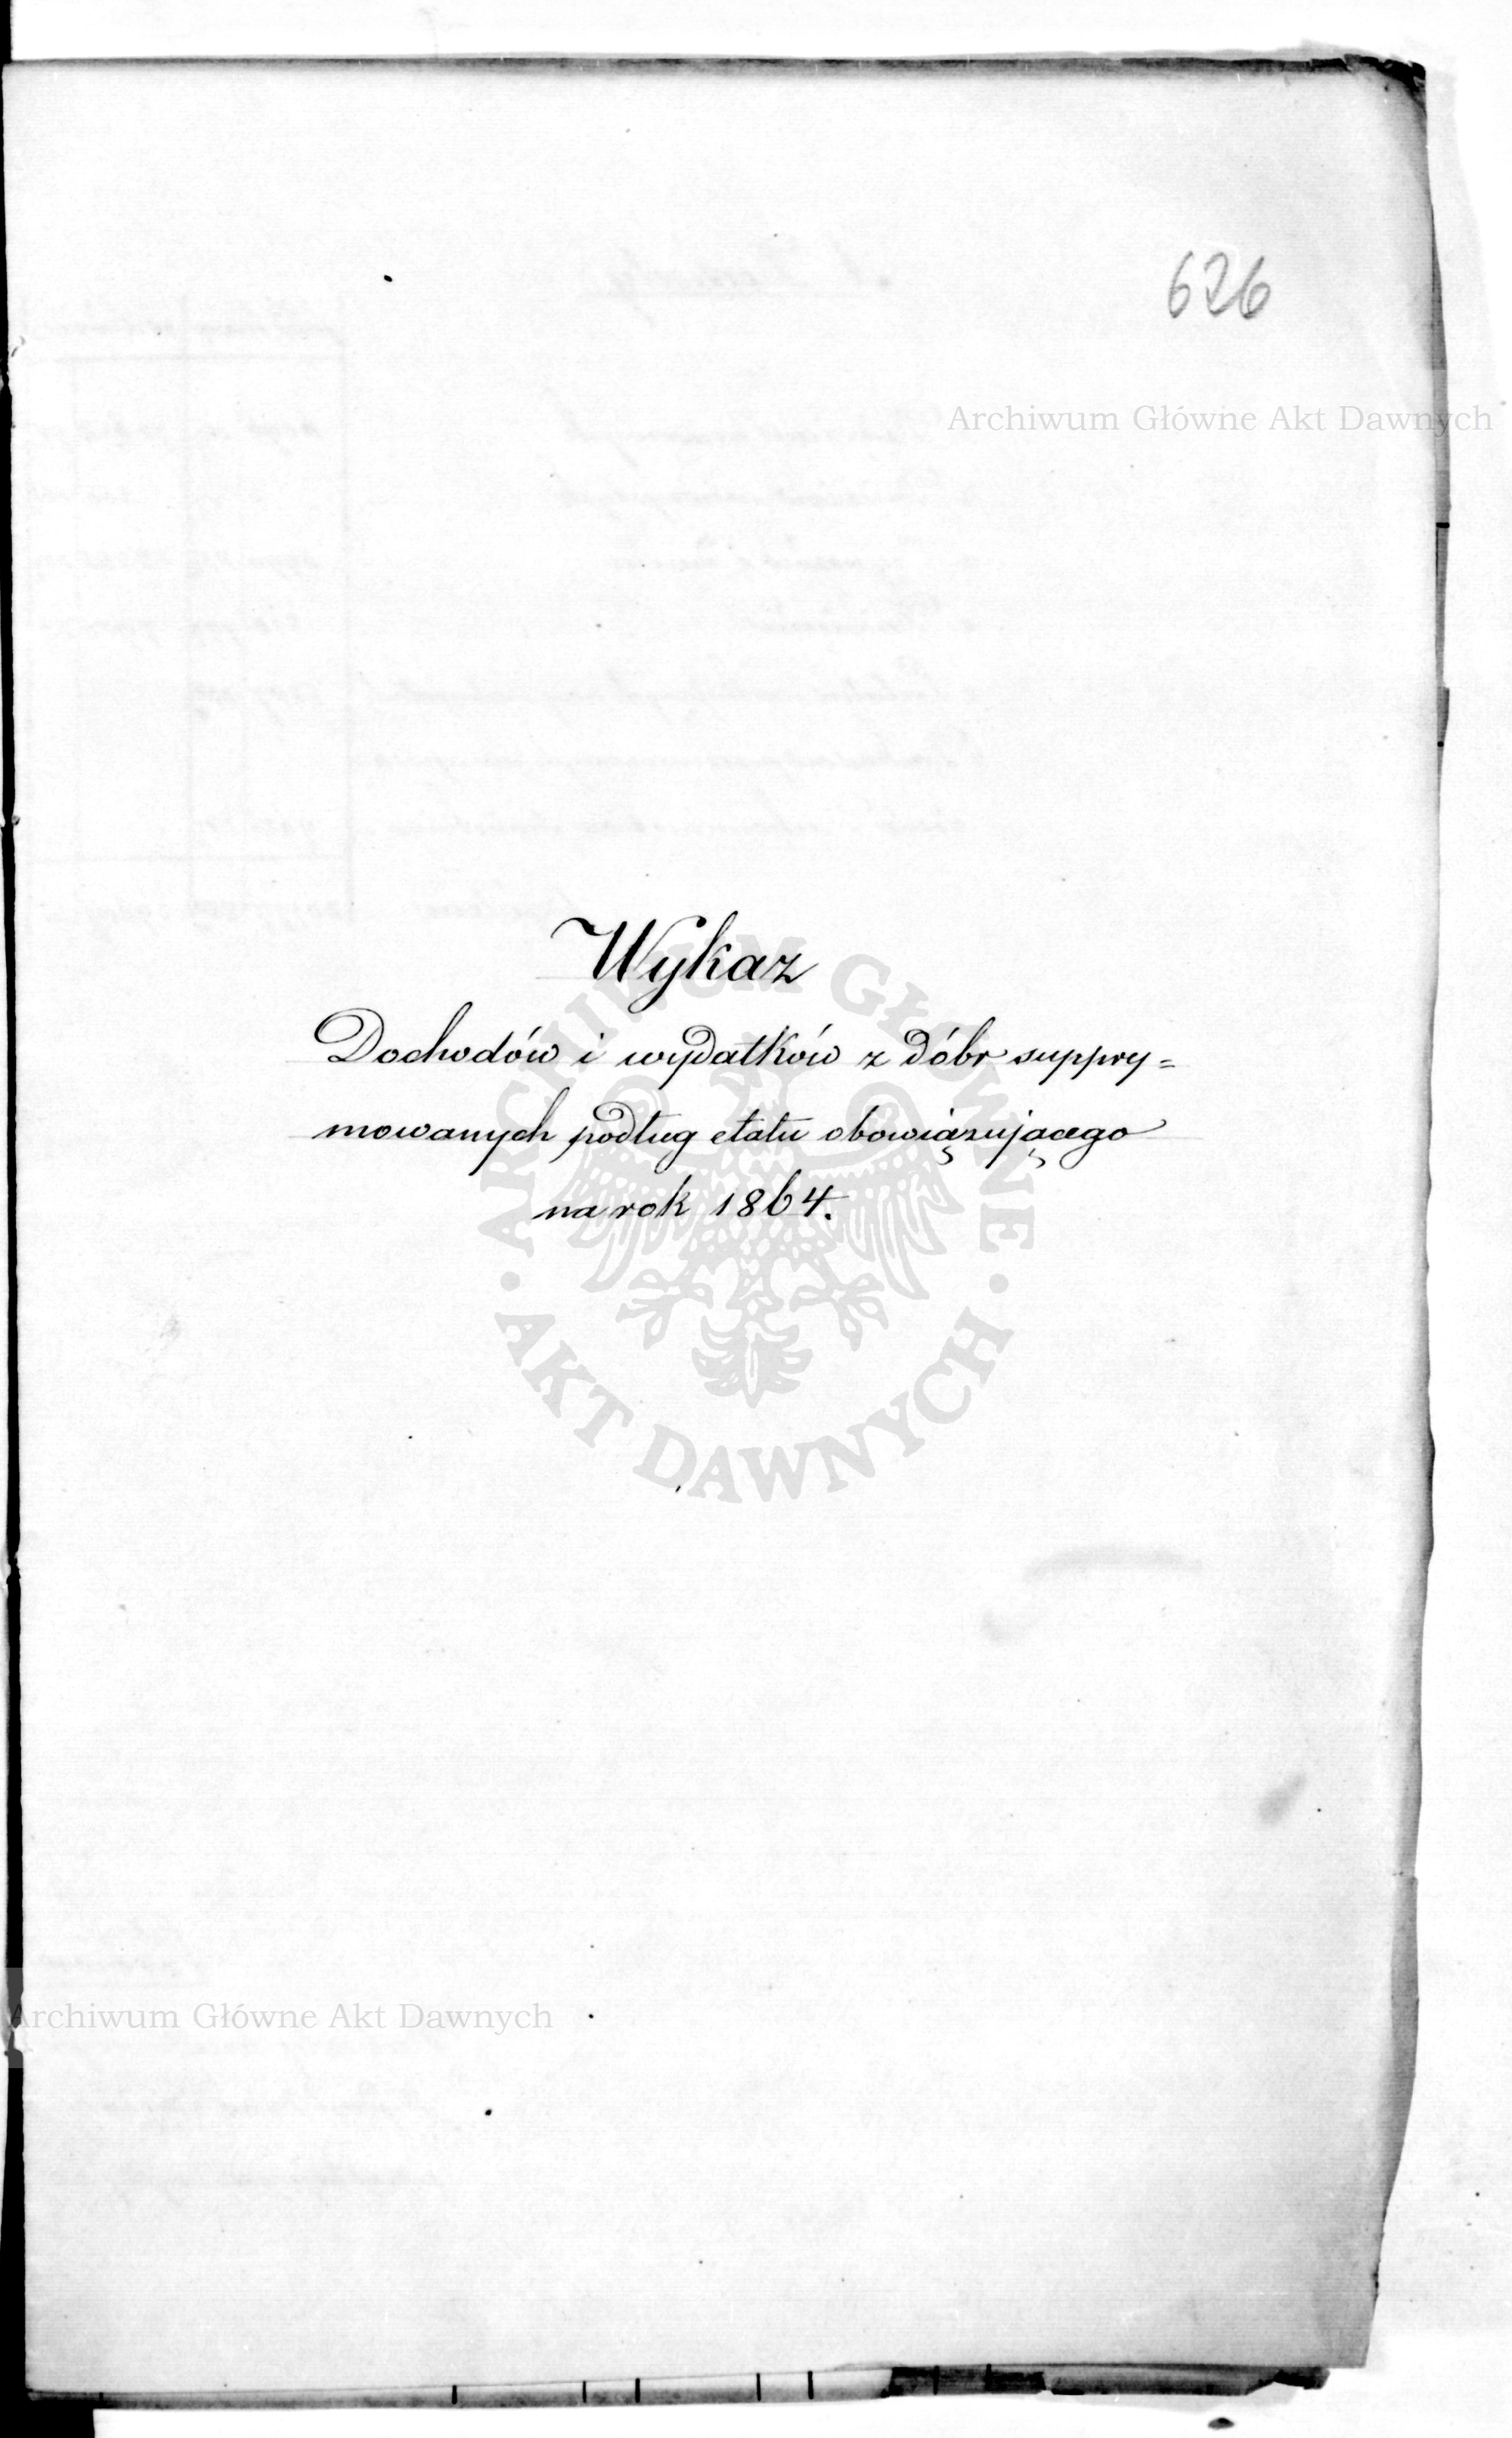 626
Archiwum Główne Akt Dawnych
Wykaz
Dochodów i wydatków z dóbr suppry=
mowanych podług etatu obowiązującego
na rok 1864.
ARCHIWUM GŁÓWNE
· AKT DAWNYCH ·
Archiwum Główne Akt Dawnych